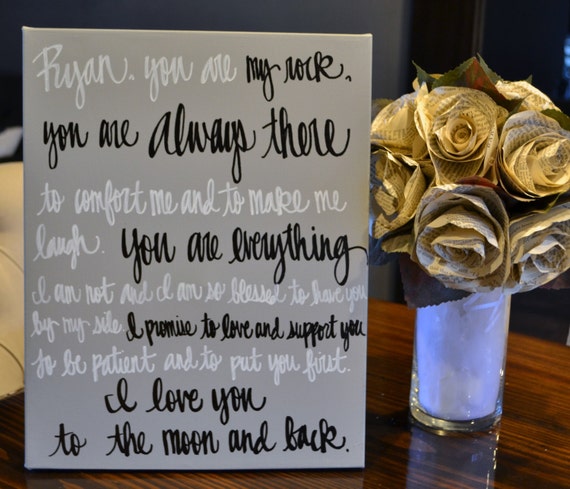 Ryan, you are my rock,
you are always there
to comfort me and to make me
laugh. You are everything
I am not and I am so blessed to have you
by my side. I promise to love and support you
to be patient and to put you first.
I love you
to the moon and back.